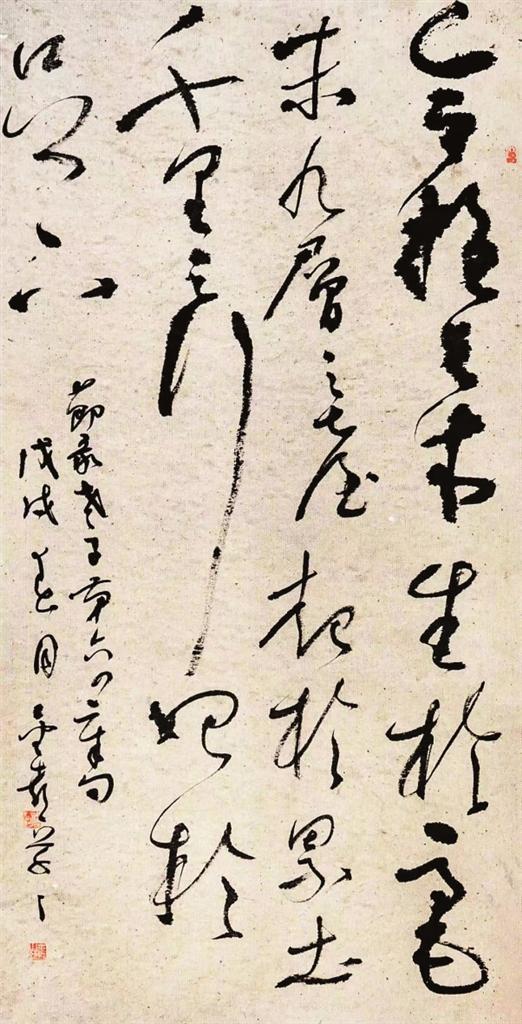 合抱之木生於毫
末九層之臺起於累土
千里之行始於
足下
節录老子第六四章句
戊戌春月